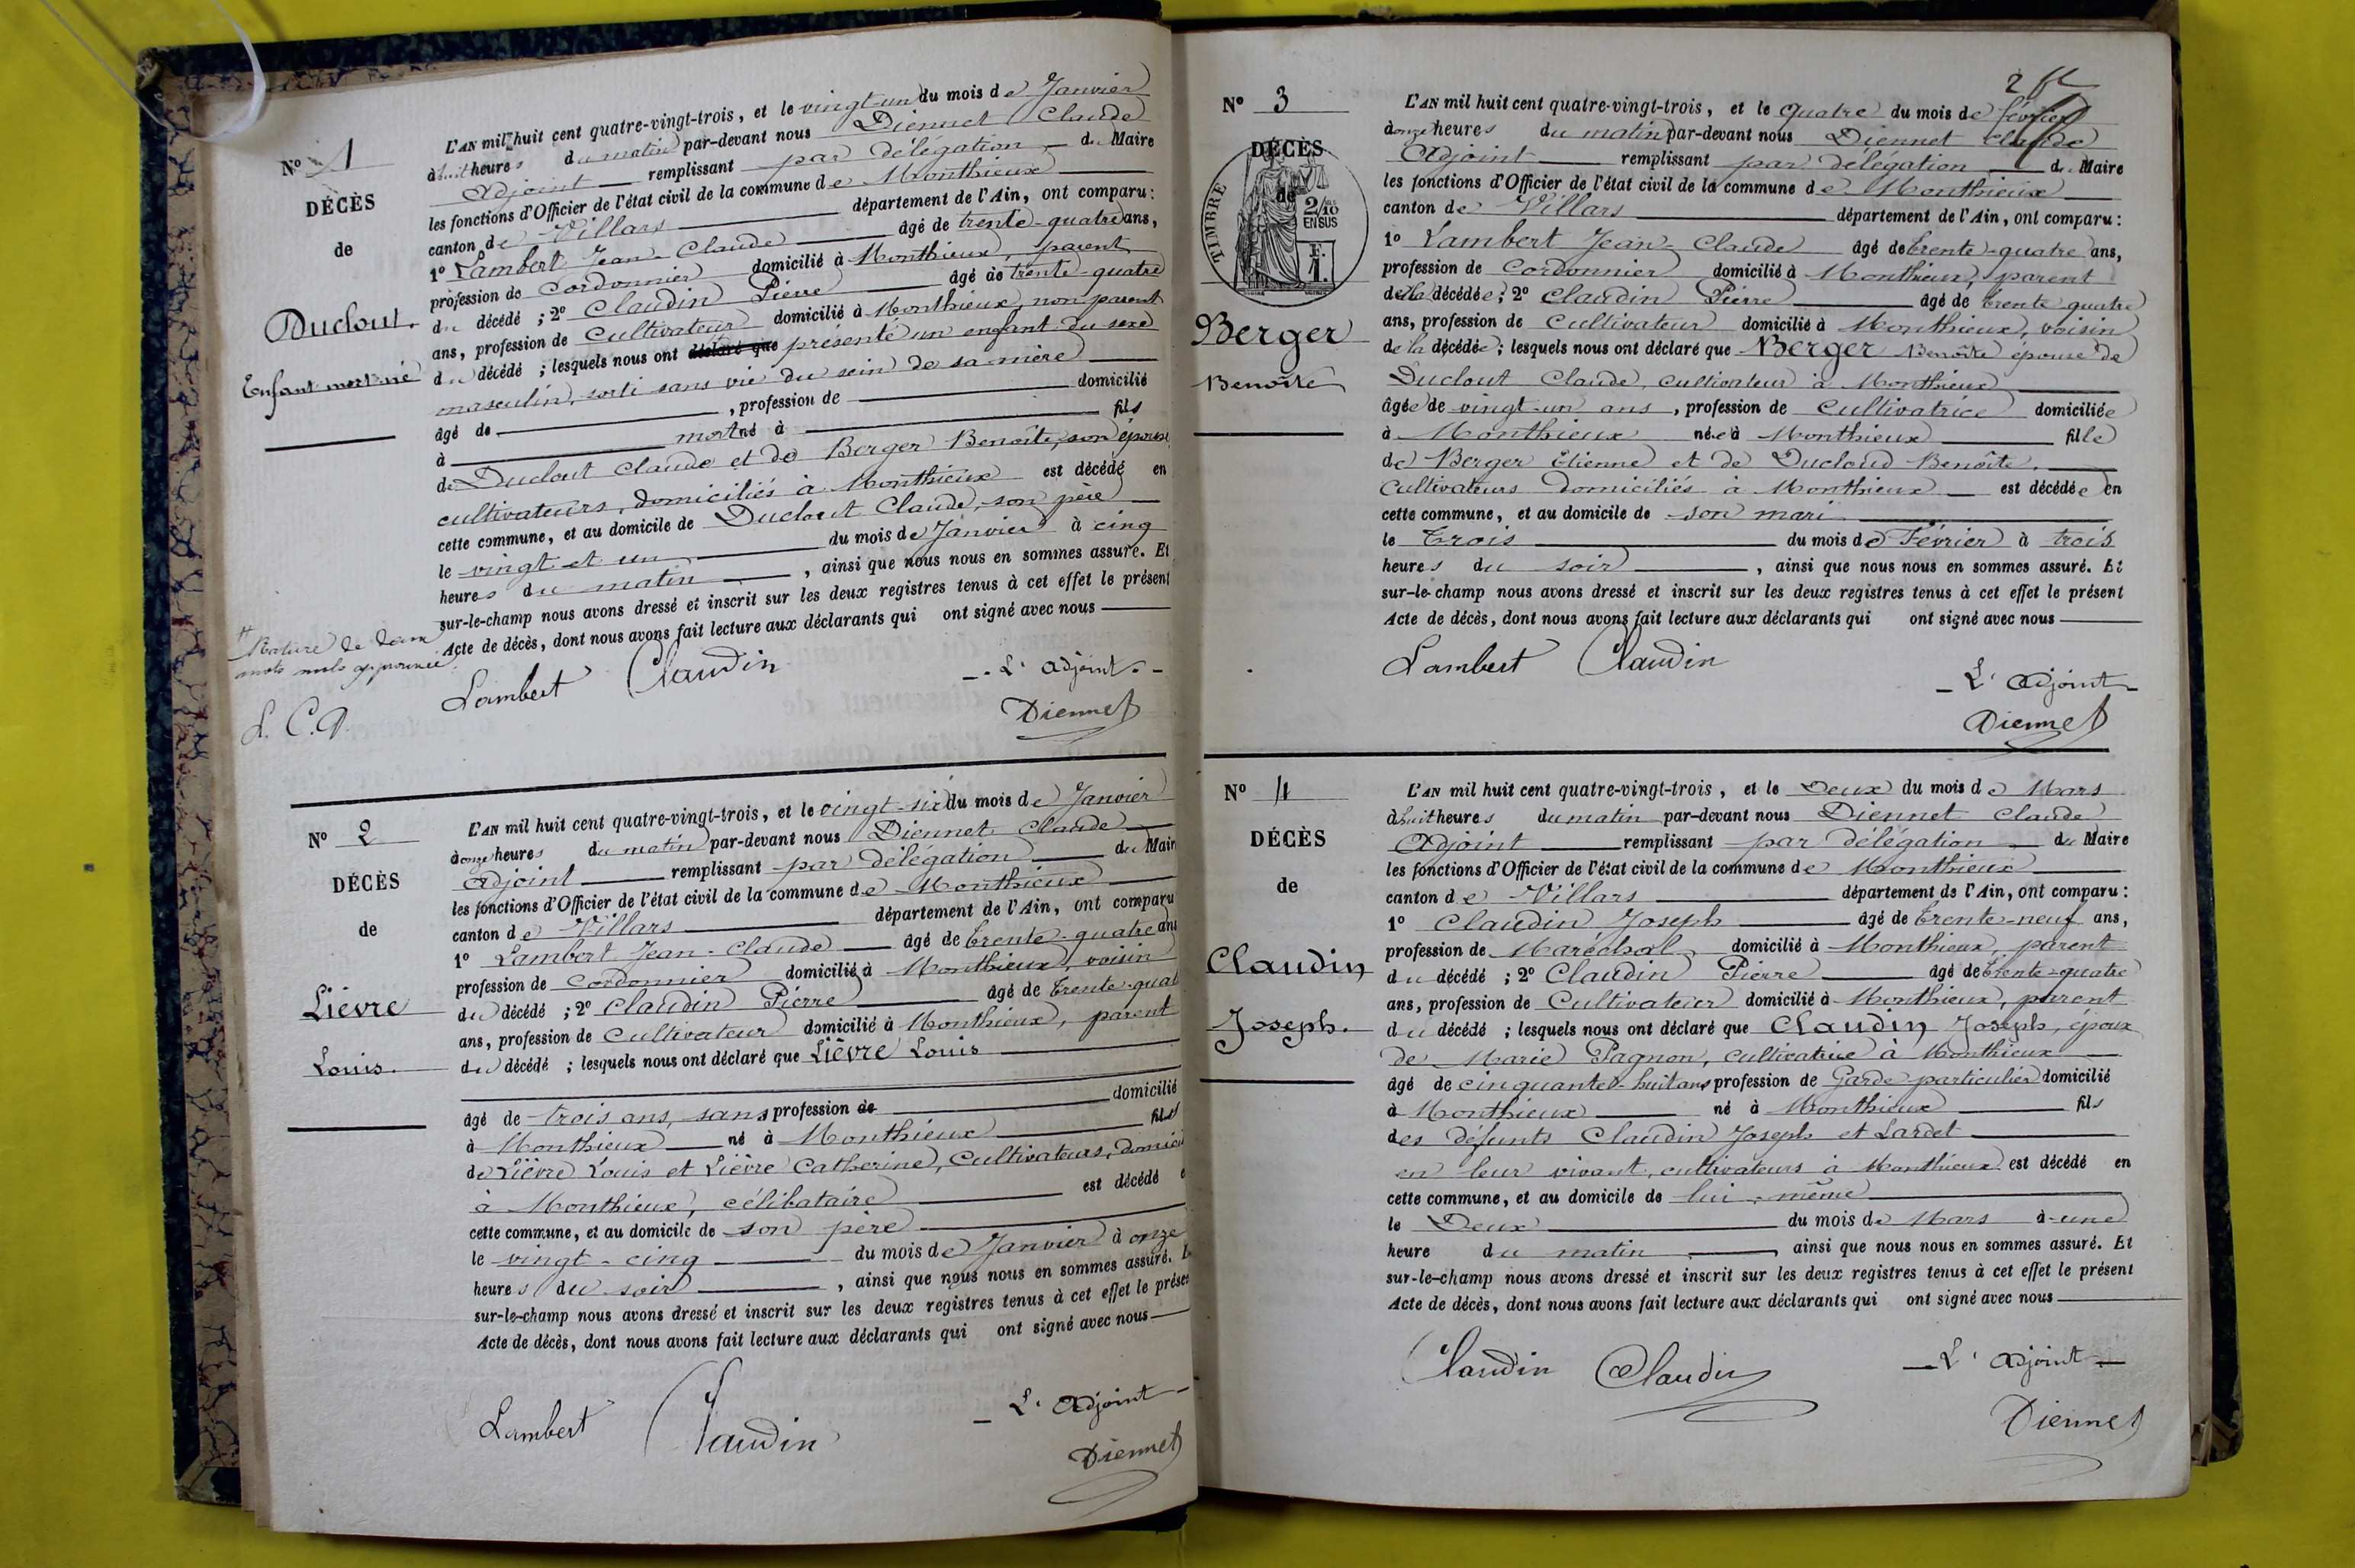 N° 1
DÉCÈS
de
Duclout.
Enfant mort-né
L'AN mil huit cent quatre-vingt-trois, et le vingt-un du mois de Janvier
à huit heures du matin par-devant nous Diennet Claude
Adjoint remplissant par délégation du Maire
les fonctions d'Officier de l'état civil de la commune de Monthieux
canton de Villars département de l'Ain, ont comparu :
1° Lambert Jean-Claude âgé de trente-quatre ans,
profession de Cordonnier domicilié à Monthieux, parent
du décédé ; 2° Claudin Pierre âgé de trente-quatre
ans, profession de Cultivateur domicilié à Monthieux, non parent
du décédé ; lesquels nous ont déclaré que présenté un enfant du sexe
masculin, sorti sans vie du sein de sa mère
âgé de , profession de domicilié
à mort né à fils
de Duclout Claude et de Berger Benoîte, son épouse
cultivateurs, domiciliés à Monthieux est décédé en
cette commune, et au domicile de Duclout Claude, son père
le vingt et un du mois de Janvier à cinq
heures du matin , ainsi que nous nous en sommes assuré. Et
sur-le-champ nous avons dressé et inscrit sur les deux registres tenus à cet effet le présent
Acte de décès, dont nous avons fait lecture aux déclarants qui ont signé avec nous
Rature de deux
mots nuls approuvée.
L. C. D.
Lambert Claudin
L'adjoint.
Diennet
N° 2
DÉCÈS
de
Lièvre
Louis.
L'AN mil huit cent quatre-vingt-trois, et le vingt-six du mois de Janvier
à onze heures du matin par-devant nous Diennet Claude
Adjoint remplissant par délégation du Mair
les fonctions d'Officier de l'état civil de la commune de Monthieux
canton de Villars département de l'Ain, ont comparu
1° Lambert Jean-Claude âgé de trente-quatre ans
profession de Cordonnier domicilié à Monthieux, voisin
du décédé ; 2° Claudin Pierre âgé de trente-quat
ans, profession de Cultivateur domicilié à Monthieux, parent
du décédé ; lesquels nous ont déclaré que Lièvre Louis
âgé de trois ans, sans profession de domicilié
à Monthieux né à Monthieux fils
de Lièvre Louis et Lièvre Catherine, Cultivateurs, domici
à Monthieux, célibataire est décédé e
cette commune, et au domicile de son père
le vingt-cinq du mois de Janvier à onze
heures du soir , ainsi que nous nous en sommes assuré. E
sur-le-champ nous avons dressé et inscrit sur les deux registres tenus à cet effet le présen
Acte de décès, dont nous avons fait lecture aux déclarants qui ont signé avec nous
Lambert Claudin
L'adjoint
Diennet
2
N° 3
DÉCÈS
de
TIMBRE
2/10 EN SUS
F. 1.
Berger
Benoîte
L'AN mil huit cent quatre-vingt-trois, et le quatre du mois de février
à onze heures du matin par-devant nous Diennet Claude
Adjoint remplissant par délégation du Maire
les fonctions d'Officier de l'état civil de la commune de Monthieux
canton de Villars département de l'Ain, ont comparu :
1° Lambert Jean-Claude âgé de trente-quatre ans,
profession de Cordonnier domicilié à Monthieux, parent
de la décédée ; 2° Claudin Pierre âgé de trente quatre
ans, profession de Cultivateur domicilié à Monthieux, voisin
de la décédée ; lesquels nous ont déclaré que Berger Benoîte épouse de
Duclout Claude, cultivateur à Monthieux
âgée de vingt-un ans , profession de Cultivatrice domiciliée
à Monthieux née à Monthieux fille
de Berger Etienne et de Ducloud Benoîte.
Cultivateurs domiciliés à Monthieux est décédée en
cette commune, et au domicile de son mari
le Trois du mois de Février à trois
heures du soir , ainsi que nous nous en sommes assuré. Et
sur-le-champ nous avons dressé et inscrit sur les deux registres tenus à cet effet le présent
Acte de décès, dont nous avons fait lecture aux déclarants qui ont signé avec nous
Lambert Claudin
L'adjoint
Diennet
N° 4
DÉCÈS
de
Claudin
Joseph.
L'AN mil huit cent quatre-vingt-trois, et le Deux du mois de Mars
à huit heures du matin par-devant nous Diennet Claude
Adjoint remplissant par délégation du Maire
les fonctions d'Officier de l'état civil de la commune de Monthieux
canton de Villars département de l'Ain, ont comparu :
1° Claudin Joseph âgé de trente-neuf ans,
profession de Maréchal domicilié à Monthieux, parent
du décédé ; 2° Claudin Pierre âgé de trente-quatre
ans, profession de Cultivateur domicilié à Monthieux, parent
du décédé ; lesquels nous ont déclaré que Claudin Joseph, époux
de Marie Pagnon, cultivatrice à Monthieux
âgé de cinquante-huit ans profession de Garde particulier domicilié
à Monthieux né à Monthieux fils
des défunts Claudin Joseph et Lardet
en leur vivant, cultivateurs à Monthieux est décédé en
cette commune, et au domicile de lui-même
le Deux du mois de Mars à une
heure du matin , ainsi que nous nous en sommes assuré. Et
sur-le-champ nous avons dressé et inscrit sur les deux registres tenus à cet effet le présent
Acte de décès, dont nous avons fait lecture aux déclarants qui ont signé avec nous
Claudin Claudin
L'adjoint
Diennet